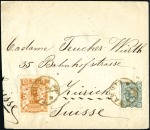 Madame Teucher Wirth
35 Bahnhofstrasse
Zürich
Suisse
Suisse